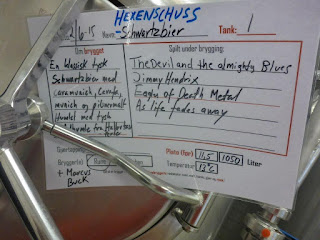 HEXENSCHUSS
2/6-15 Navn Schwartzbier Tank: 1
Om brygget
Spilt under brygging:
En klassisk tysk
Schwartzbier med
caramunich, Carafa,
munich og pilsnermalt
Humlet med tysk
humle fra Hallertau
The Devil and the almighty Blues
Jimmy Hendrix
Eagle of Death Metal
As life fades away
Plato (før) 11,5 1050 Liter
Brygger(e)
+ Marcus
Buck
Temperatur 12°C